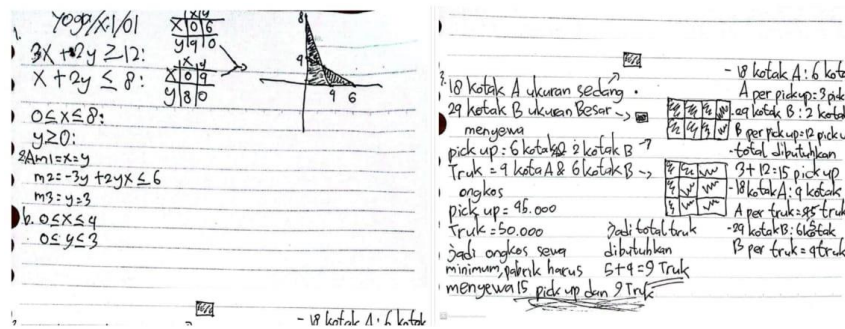 Yoga/XI/01
1.
3x + 2y ≥ 12:
x + 2y ≤ 8:
0 ≤ x ≤ 8:
y ≥ 0:
x y
x 0 6
y 9 0
x y
x 0 9
y 8 0
8
9
9 6
2. A m1 = x = y
m2 = -3y + 2yx ≤ 6
m3 = y = 3
b. 0 ≤ x ≤ 4
0 ≤ y ≤ 3
- 18 kotak A : 6 kotak
3.
18 kotak A ukuran sedang
29 kotak B ukuran Besar
menyewa
pick up = 6 kotak 2 kotak B
Truk = 9 kota A & 6 kotak B
ongkos
pick up = 45.000
Truk = 50.000
jadi ongkos sewa
minimum, pabrik harus
menyewa 15 pick up dan 9 Truk
jadi total truk
dibutuhkan
5+4=9 Truk
- 18 kotak A : 6 kota
A per pickup = 3 pick
- 29 kotak B : 2 kotak
B per pickup = 12 pick u
- total dibutuhkan
3 + 12 = 15 pick up
- 18 kotak A : 9 kotak
A per truk = truk
- 29 kotak B : 6 kotak
B per truk = 4 truk